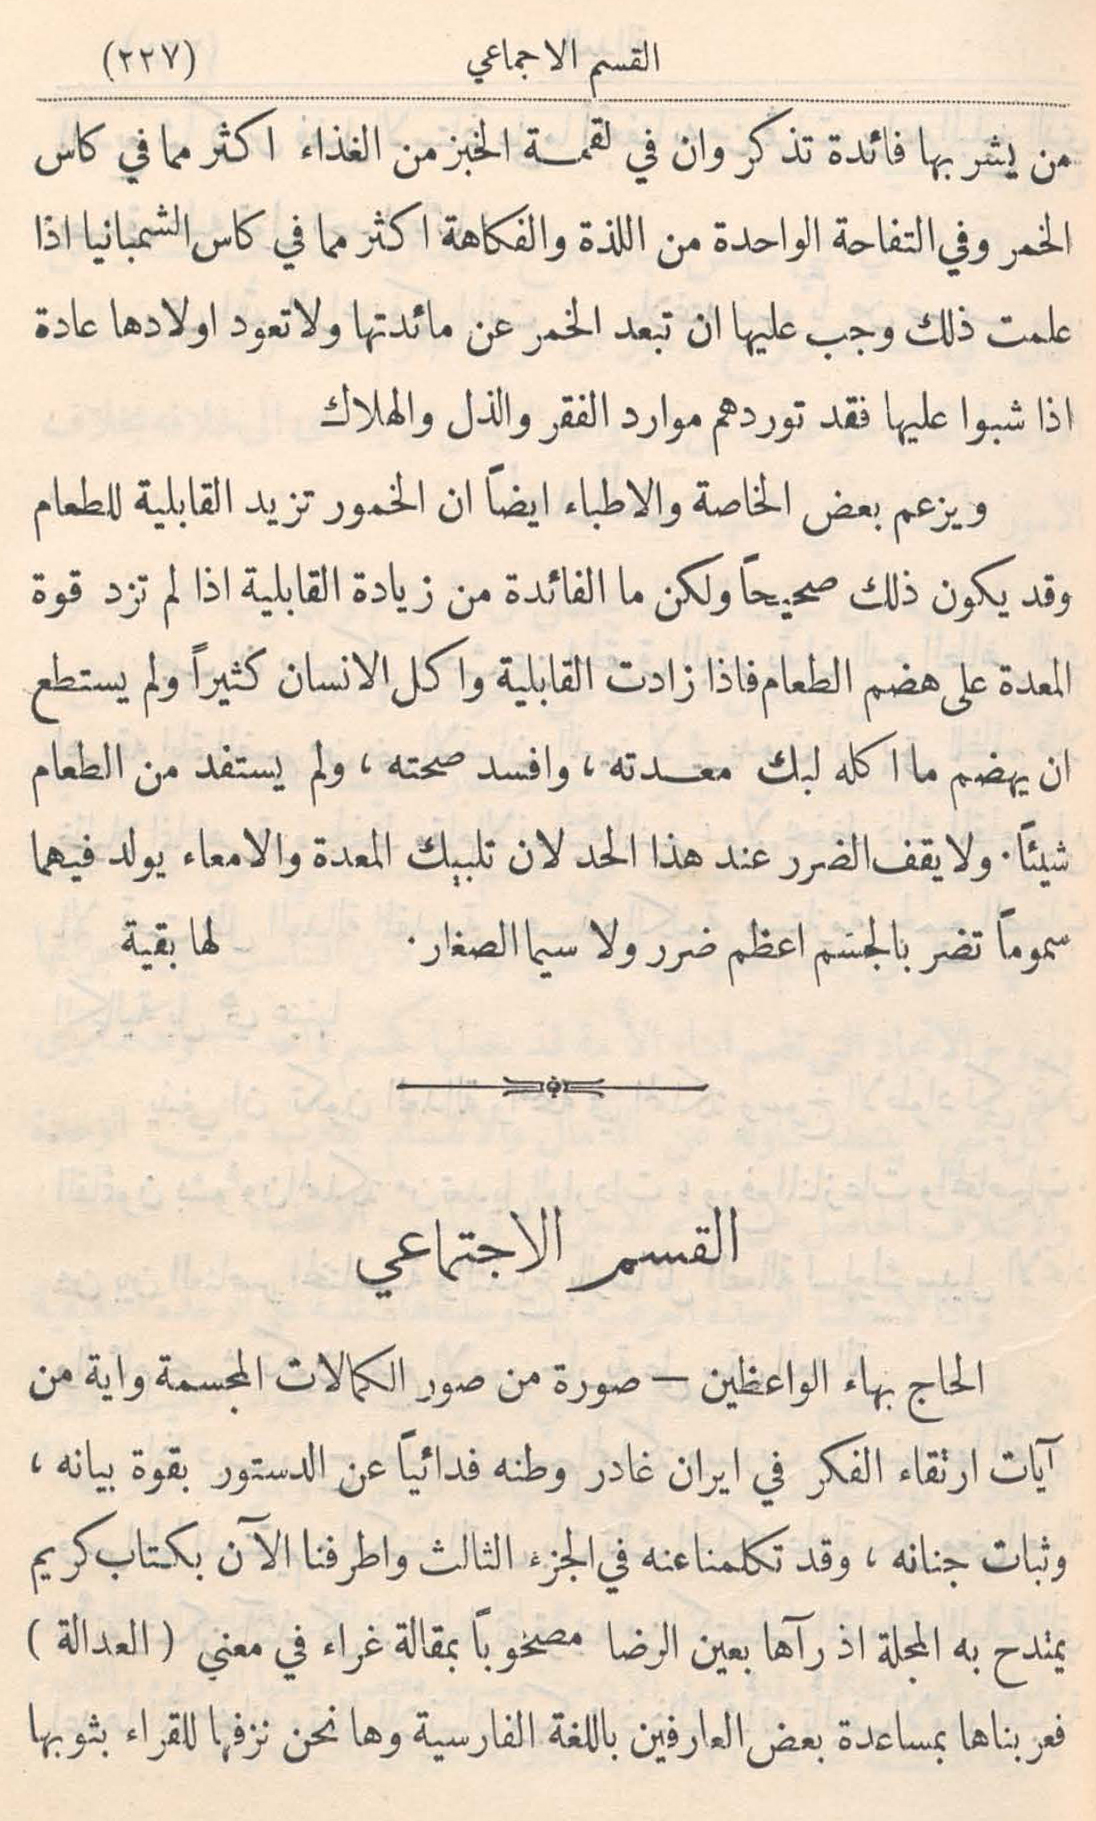 القسم الاجماعي (٢٢٧)
من يشربها فائدة تذكر وان في لقمة الخبز من الغذاء اكثر مما في كاس
الخمر وفي التفاحة الواحدة من اللذة والفكاهة اكثر مما في كاس الشمبانيا اذا
علمت ذلك وجب عليها ان تبعد الخمر عن مائدتها ولا تعود اولادها عادة
اذا شبوا عليها فقد توردهم موارد الفقر والذل والهلاك
ويزعم بعض الخاصة والاطباء ايضاً ان الخمور تزيد القابلية للطعام
وقد يكون ذلك صحيحاً ولكن ما الفائدة من زيادة القابلية اذا لم تزد قوة
المعدة على هضم الطعام فاذا زادت القابلية واكل الانسان كثيراً ولم يستطع
ان يهضم ما اكله لبك معدته ، وافسد صحته ، ولم يستفد من الطعام
شيئاً . ولا يقف الضرر عند هذا الحد لان تلبيك المعدة والامعاء يولد فيهما
سموماً تضر بالجسم اعظم ضرر ولا سيما الصغار . لها بقية
القسم الاجتماعي
الحاج بهاء الواعظين — صورة من صور الكمالات المجسمة واية من
آيات ارتقاء الفكر في ايران غادر وطنه فدائياً عن الدستور بقوة بيانه ،
وثبات جنانه ، وقد تكلمنا عنه في الجزء الثالث واطرفنا الآن بكتاب كريم
يمتدح به المجلة اذ رآها بعين الرضا مصحوباً بمقالة غراء في معنى ( العدالة )
فعربناها بمساعدة بعض العارفين باللغة الفارسية وها نحن نزفها للقراء بثوبها